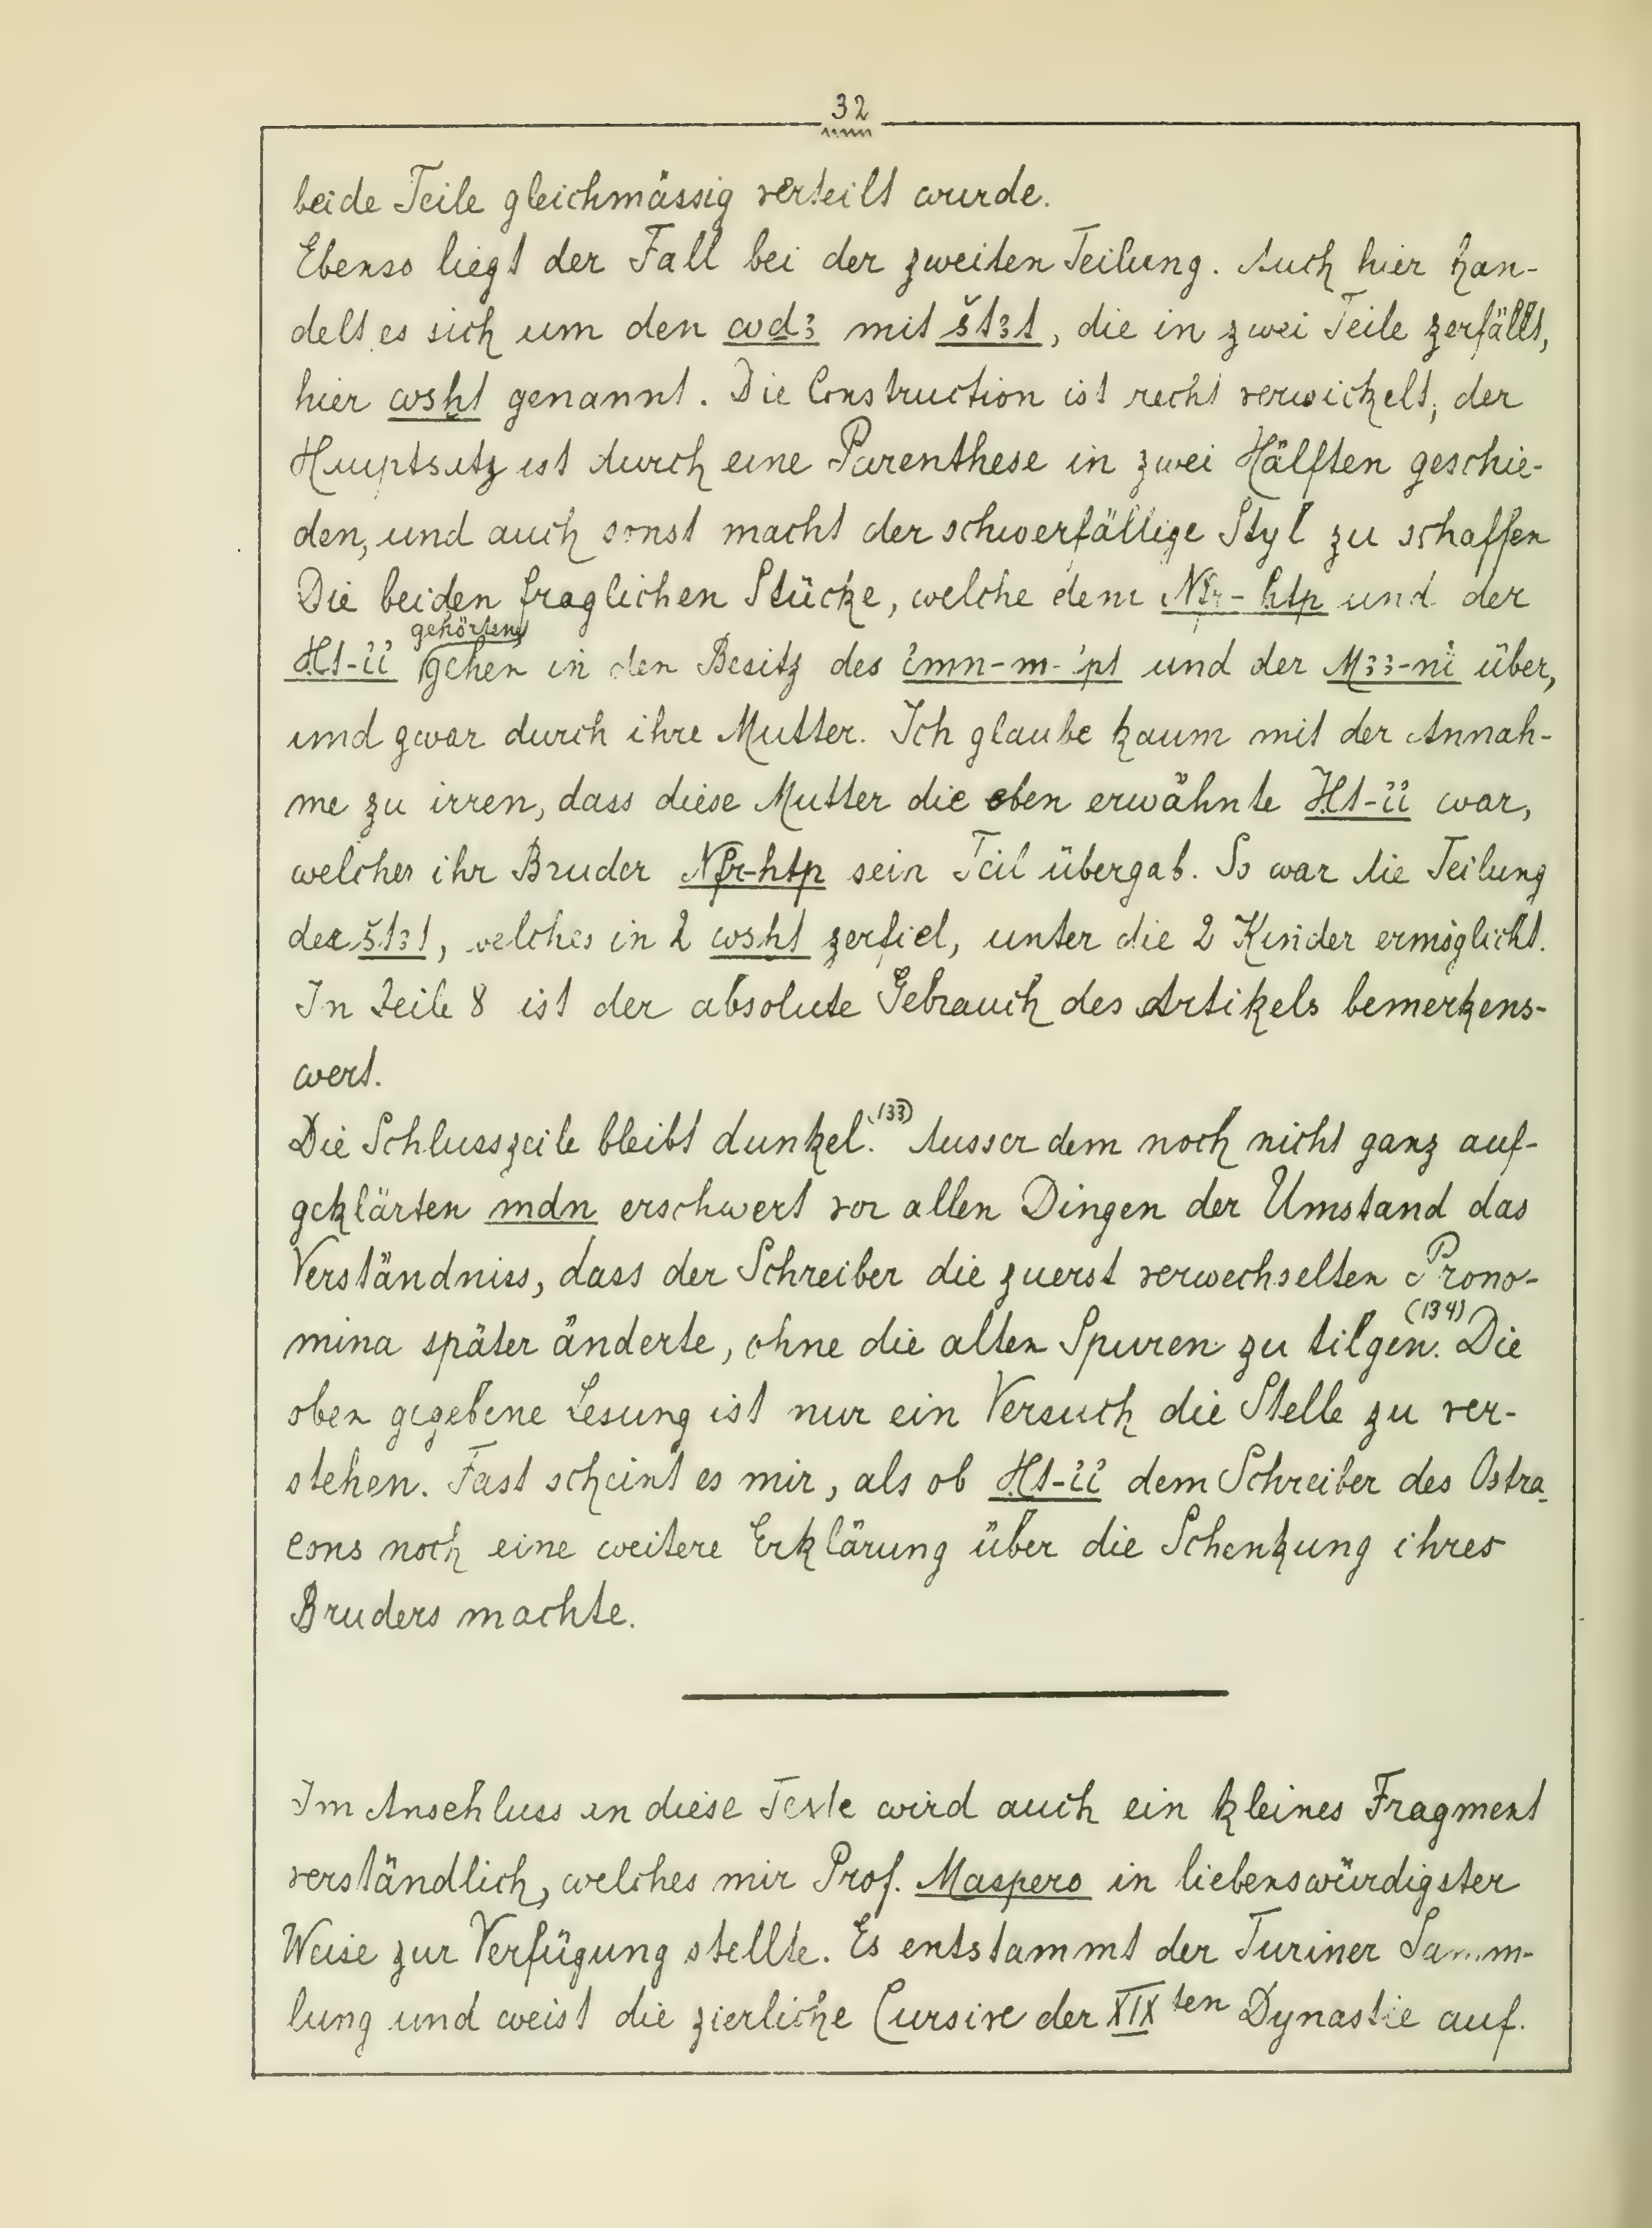 32
beide Teile gleichmässig verteilt wurde.
Ebenso liegt der Fall bei der zweiten Teilung. Auch hier han-
delt es sich um den wḏꜣ mit štꜣt, die in zwei Teile zerfällt,
hier wsḫt genannt. Die Construction ist recht verwickelt, der
Hauptsatz ist durch eine Parenthese in zwei Hälften geschie-
den, und auch sonst macht der schwerfällige Styl zu schaffen
Die beiden fraglichen Stücke, welche dem Nfr-ḥtp und der
gehörten,
Ḥt-ỉỉ gehen in den Besitz des ỉmn-m-ʾpt und der Mꜣꜣ-nỉ über,
und zwar durch ihre Mutter. Ich glaube kaum mit der Annah-
me zu irren, dass diese Mutter die eben erwähnte Ḥt-ỉỉ war,
welcher ihr Bruder Nfr-ḥtp sein Teil übergab. So war die Teilung
der štꜣt, welches in 2 wsḫt zerfiel, unter die 2 Kinder ermöglicht.
In Zeile 8 ist der absolute Gebrauch des Artikels bemerkens-
wert.
Die Schlusszeile bleibt dunkel.(133) Ausser dem noch nicht ganz auf-
geklärten mdn erschwert vor allen Dingen der Umstand das
Verständniss, dass der Schreiber die zuerst verwechselten Prono-
mina später änderte, ohne die alten Spuren zu tilgen.(134) Die
oben gegebene Lesung ist nur ein Versuch die Stelle zu ver-
stehen. Fast scheint es mir, als ob Ḥt-ỉỉ dem Schreiber des Ostra-
cons noch eine weitere Erklärung über die Schenkung ihres
Bruders machte.
Im Anschluss an diese Texte wird auch ein kleines Fragment
verständlich, welches mir Prof. Maspero in liebenswürdigster
Weise zur Verfügung stellte. Es entstammt der Turiner Samm-
lung und weist die zierliche Cursive der XIXten Dynastie auf.